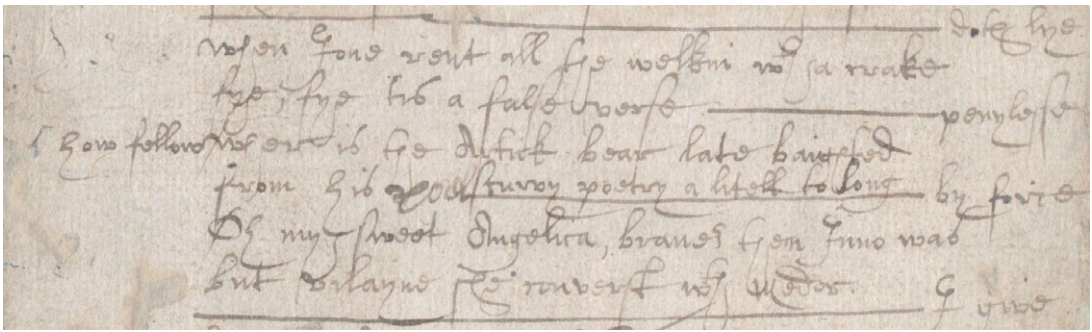 doth lye
when Joue rent all the welkin wth a crake
fye, fye tis a false verse penylesse
how fellow wher is the Artick bear late baighted
from his poel scurvy poetry a litell to long by force
Oh my sweet Angelica, braver then Juno was
but vilayne she converst wth Medor give